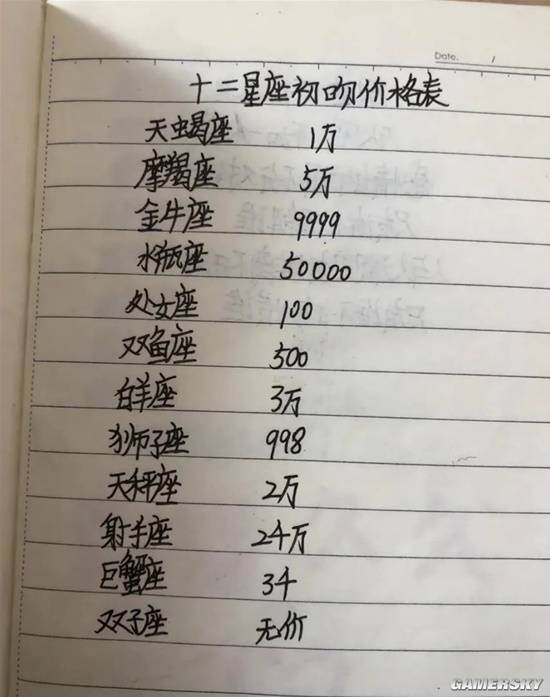 Date. /
十二星座初吻价格表
天虫蝎座 1万
摩羯座 5万
金牛座 9999
水瓶座 50000
处女座 100
双鱼座 500
白羊座 3万
狮子座 998
天秤座 2万
射手座 24万
巨蟹座 34
双子座 无价
GAMERSKY